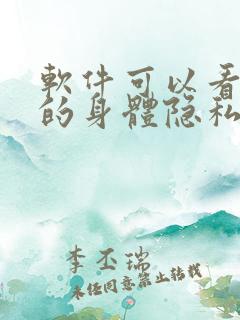 軟件可以看
的身體隐私
李丕瑞
未经同意禁止转载